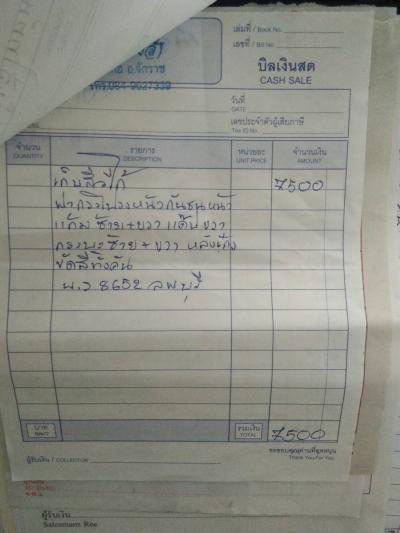 เล่มที่ / Book No.
เลขที่ / Bill No.
อ.จักราช
บิลเงินสด
CASH SALE
วันที่
DATE
เลขประจำตัวผู้เสียภาษี
Tax ID No.
จำนวน
QUANTITY
รายการ
DESCRIPTION
หน่วยละ
UNIT PRICE
จำนวนเงิน
AMOUNT
7500
ฝากระโปรงหน้า กันชนหน้า
แก้มซ้าย+ขวา
กระบะซ้าย + ขวา หลังเก๋ง
ขัดสีทั้งคัน
8652 ลพบุรี
บาท
BAHT
รวมเงิน
TOTAL
7500
ผู้รับเงิน / COLLECTOR
ขอขอบคุณท่านที่อุดหนุน
Thank You For You
ผู้รับเงิน